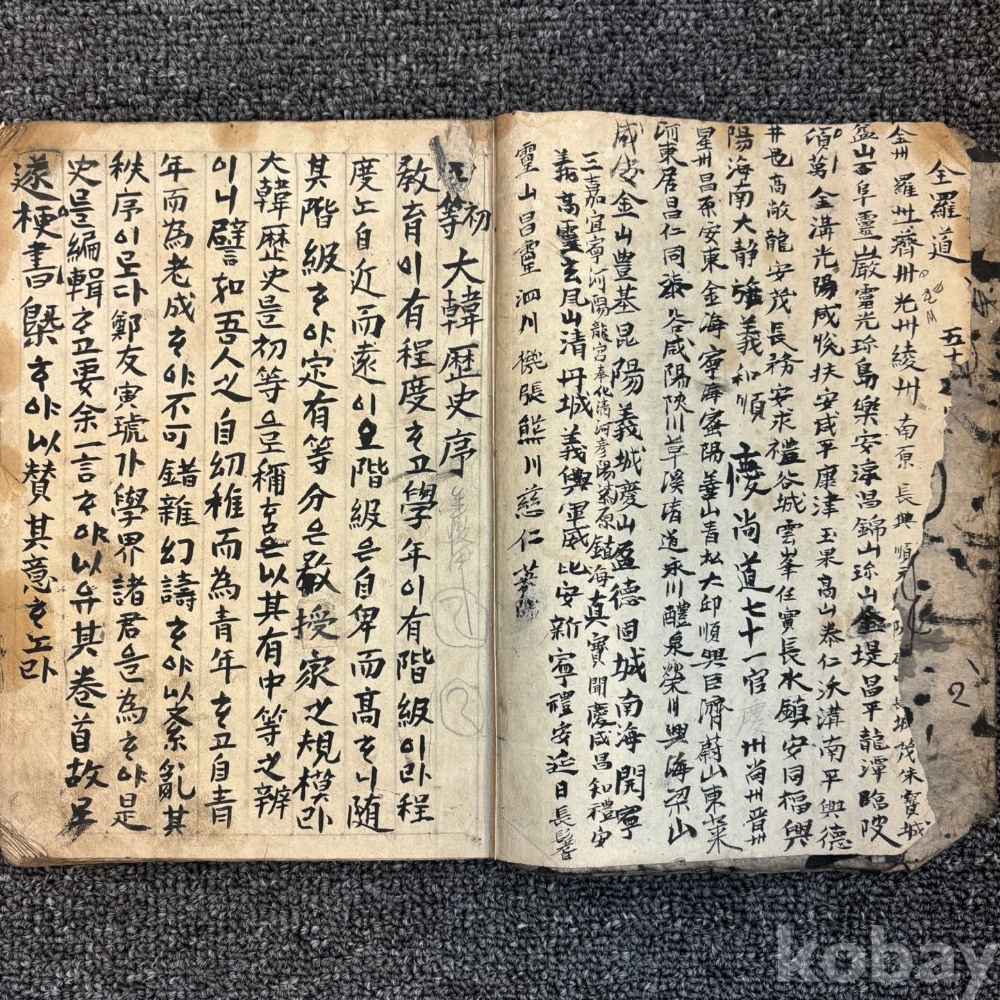 全羅道 五十
全州 羅州 濟州 光州 綾州 南原 長興 順天 長城 茂朱 寶城
益山 古阜 靈巖 靈光 珍島 樂安 淳昌 錦山 珍山 金堤 昌平 龍潭 臨陂
萬頃 金溝 光陽 咸悅 扶安 咸平 康津 玉果 高山 泰仁 沃溝 南平 興德
井邑 高敞 龍安 茂長 務安 求禮 谷城 雲峯 任實 長水 鎮安 同福 興
陽 海南 大靜 旌義 和順 慶尚道 七十一官 慶州 尚州 晋州
星州 昌原 安東 金海 寧海 密陽 善山 青松 大邱 順興 巨濟 蔚山 東萊
河東 居昌 仁同 漆谷 咸陽 陜川 草溪 清道 永川 醴泉 榮川 興海 梁山
咸安 金山 豊基 昆陽 義城 慶山 盈德 固城 南海 開寧
三嘉 宜寧 河陽 龍宮 奉化 清河 彦陽 鎮海 真寶 聞慶 咸昌 知禮 安
義 高靈 玄風 山清 丹城 義興 軍威 比安 新寧 禮安 延日 長鬐
靈山 昌寧 泗川 機張 熊川 慈仁
初等 大韓歷史序
教育이有程度ᄒᆞ고學年이有階級이라程
度ᄂᆞᆫ自近而遠이오階級은自卑而高ᄒᆞ니随
其階級ᄒᆞ야定有等分은教授家之規模라
大韓歷史를初等으로稱ᄒᆞᆷ은以其有中等之辨
이니譬如吾人之自幼稚而為青年ᄒᆞ고自青
年而為老成ᄒᆞ야不可錯雜幻譸ᄒᆞ야以紊亂其
秩序이로다鄭友寅琥가學界諸君을為ᄒᆞ야是
史를編輯ᄒᆞ고要余一言ᄒᆞ야以弁其卷首故로
遂梗書槩ᄒᆞ야以賛其意ᄒᆞ노라
2
kobay